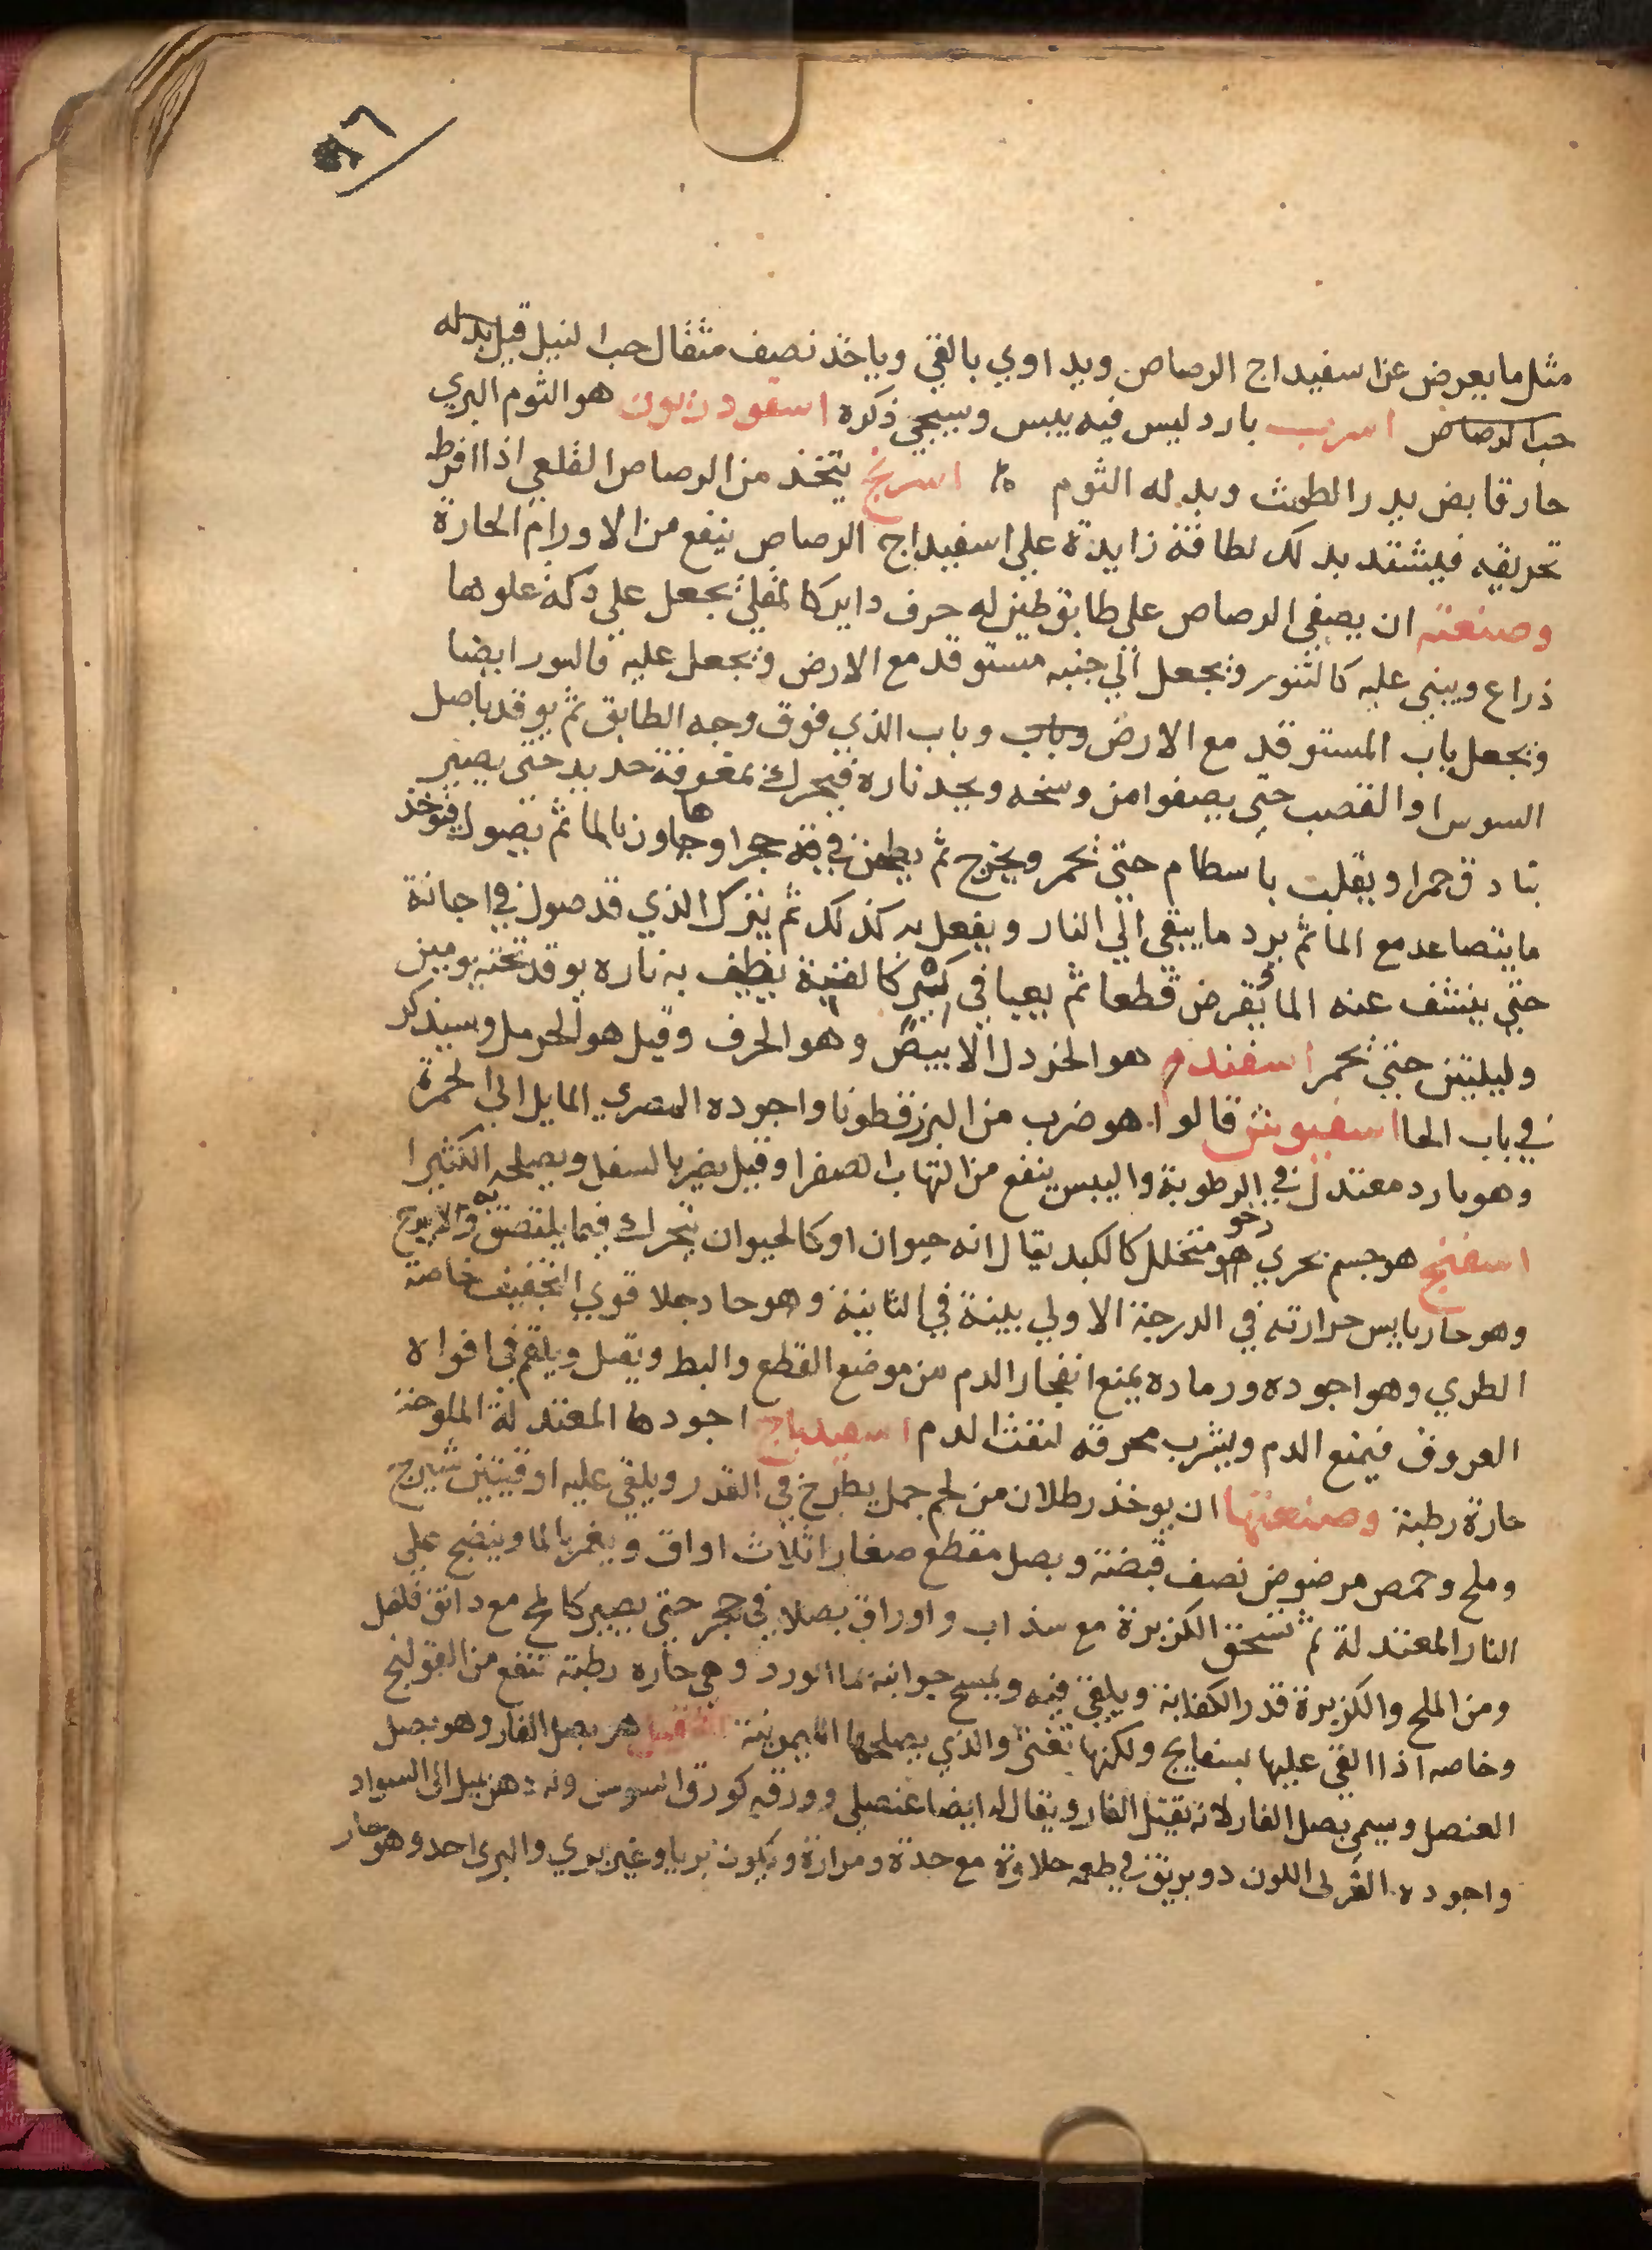 ٩٦
مثل ما يعرض عن اسفيداج الرصاص ويداوي بالقي وياخذ نصف مثقال حب النيل قيل بدله
حب الرصاص اسرب بارد ليس فيه يبس وسيجي ذكره اسقوردنيون هو الثوم البري
حار قابض يدر الطمث وبدله الثوم اسرنج يتخذ من الرصاص القلعي اذا افرط
تحريقه فيشتد بذلك لطافة زايدة علي اسفيداج الرصاص ينفع من الاورام الحارة
وصنعته ان يصفي الرصاص علي طابق طين له حرف داير كالمقلي يجعل علي دكة علوها
ذراع ويبني عليه كالتنور ويجعل الي جنبه مستوقد مع الارض ويجعل عليه فالتور ايضا
ويجعل باب المستوقد مع الارض وباب وباب الذي فوق وجه الطابق ثم يوقد باصل
السوس او القصب حتي يصفوا من وسخه ويجد ناره فيحرك بمغرفة حديد حتي يصير
بنادق حمرا ويقلب باسطام حتي يحمر ويخرج ثم يطحن في حجر او هاون بالما ثم يصول فيوخذ
ما يتصاعد مع الما ثم يرد ما يبقي الي النار ويفعل به كذلك ثم يترك الذي قد صول في اجانة
حتي ينشف عنه الما ويقرض قطعا ثم يعبا في كالقنية يطيف به ناره يوقد تحته يومين
وليلتين حتي يحمر اسفند هو الخردل الابيض وهو الحرف وقيل هو الحرمل وسيذكر
في باب الحا اسفيوش قالوا هو ضرب من البزر قطونا واجوده المصري المايل الي الحمرة
وهو بارد معتدل في الرطوبة واليبس ينفع من التهاب الصفرا وقيل يضر بالسفل ويصلحه الكثيرا
اسفنج هو جسم بحري رخو متخلل كالكبد يقال انه حيوان او كالحيوان يتحرك فيما يلتصق به
وهو حار يابس حرارته في الدرجة الاولي يبسه في الثانية وهو حاد جلا قوي التجفيف خاصة
الطري وهو اجوده ورماده يمنع انفجار الدم من موضع القطع والبط ويفتل ويلقم في افواه
العروق فيمنع الدم ويشرب محرقه لنفث الدم اسفيدباج اجودها المعتدلة الملوحة
حارة رطبة وصنعتها ان يوخذ رطلان من لحم حمل يطرح في القدر ويلقي عليه اوقيتين شيرج
وملح وحمص مرضوض نصف قبضة وبصل مقطع صغارا ثلاث اواق ويغمر بالما وينضج علي
النار المعتدلة ثم تسحق الكزبرة مع سذاب واوراق بصلا في حجر حتي يصير كالمخ مع دانق فلفل
ومن الملح والكزبرة قدر الكفاية ويلقي فيه ويمسح جوانبه بما الورد وهي حارة رطبة تنفع من القولنج
وخاصه اذا القي عليها بسفايج ولكنها تغثي والذي يصلحها الليمونية هو بصل الفار وهو بصل
العنصل وسمي بصل الفار لانه يقتل الفار ويقال له ايضا عنصلي وورقه كورق السوسن وله دهن يميل الي السواد
واجوده القرلي اللون ذو بريق في طعمه حلاوة مع حدة ومرارة ويكون بريا وغير بري والبري احد وهو حار